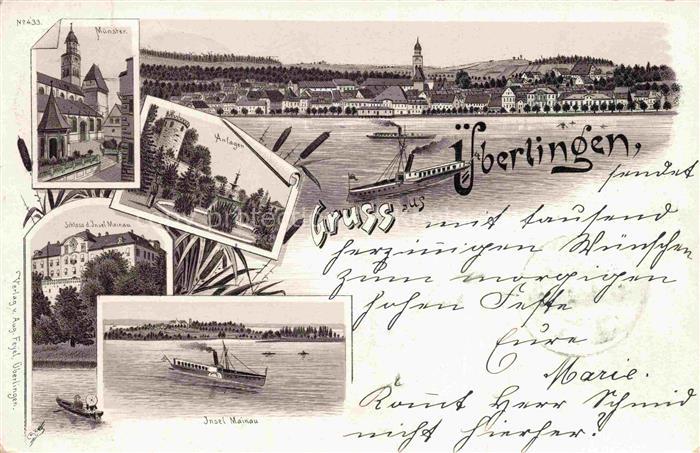 No 433.
Münster.
Anlagen
Schloss d. Insel Mainau
Insel Mainau
Verlag v. Aug. Feyel, Überlingen.
Gruss aus
Überlingen,
sendet
mit tausend
herzinnigen Wünschen
zum morgigen
hohen Feste
Eure
Marie.
Kommt Herr Schmid
nicht hierher?